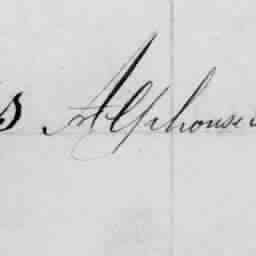 s Alphonse